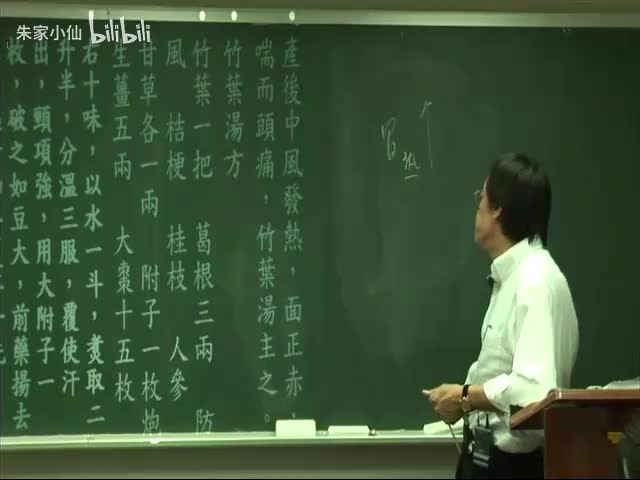 朱家小仙 bilibili
產後中風發熱，面正赤，
喘而頭痛，竹葉湯主之。
竹葉湯方
竹葉一把 葛根三兩 防
風 桔梗 桂枝 人參
甘草各一兩 附子一枚炮
生薑五兩 大棗十五枚
右十味，以水一斗，煑取二
升半，分溫三服，覆使汗
出，頸項強，用大附子一
枚，破之如豆大，前藥揚去
热